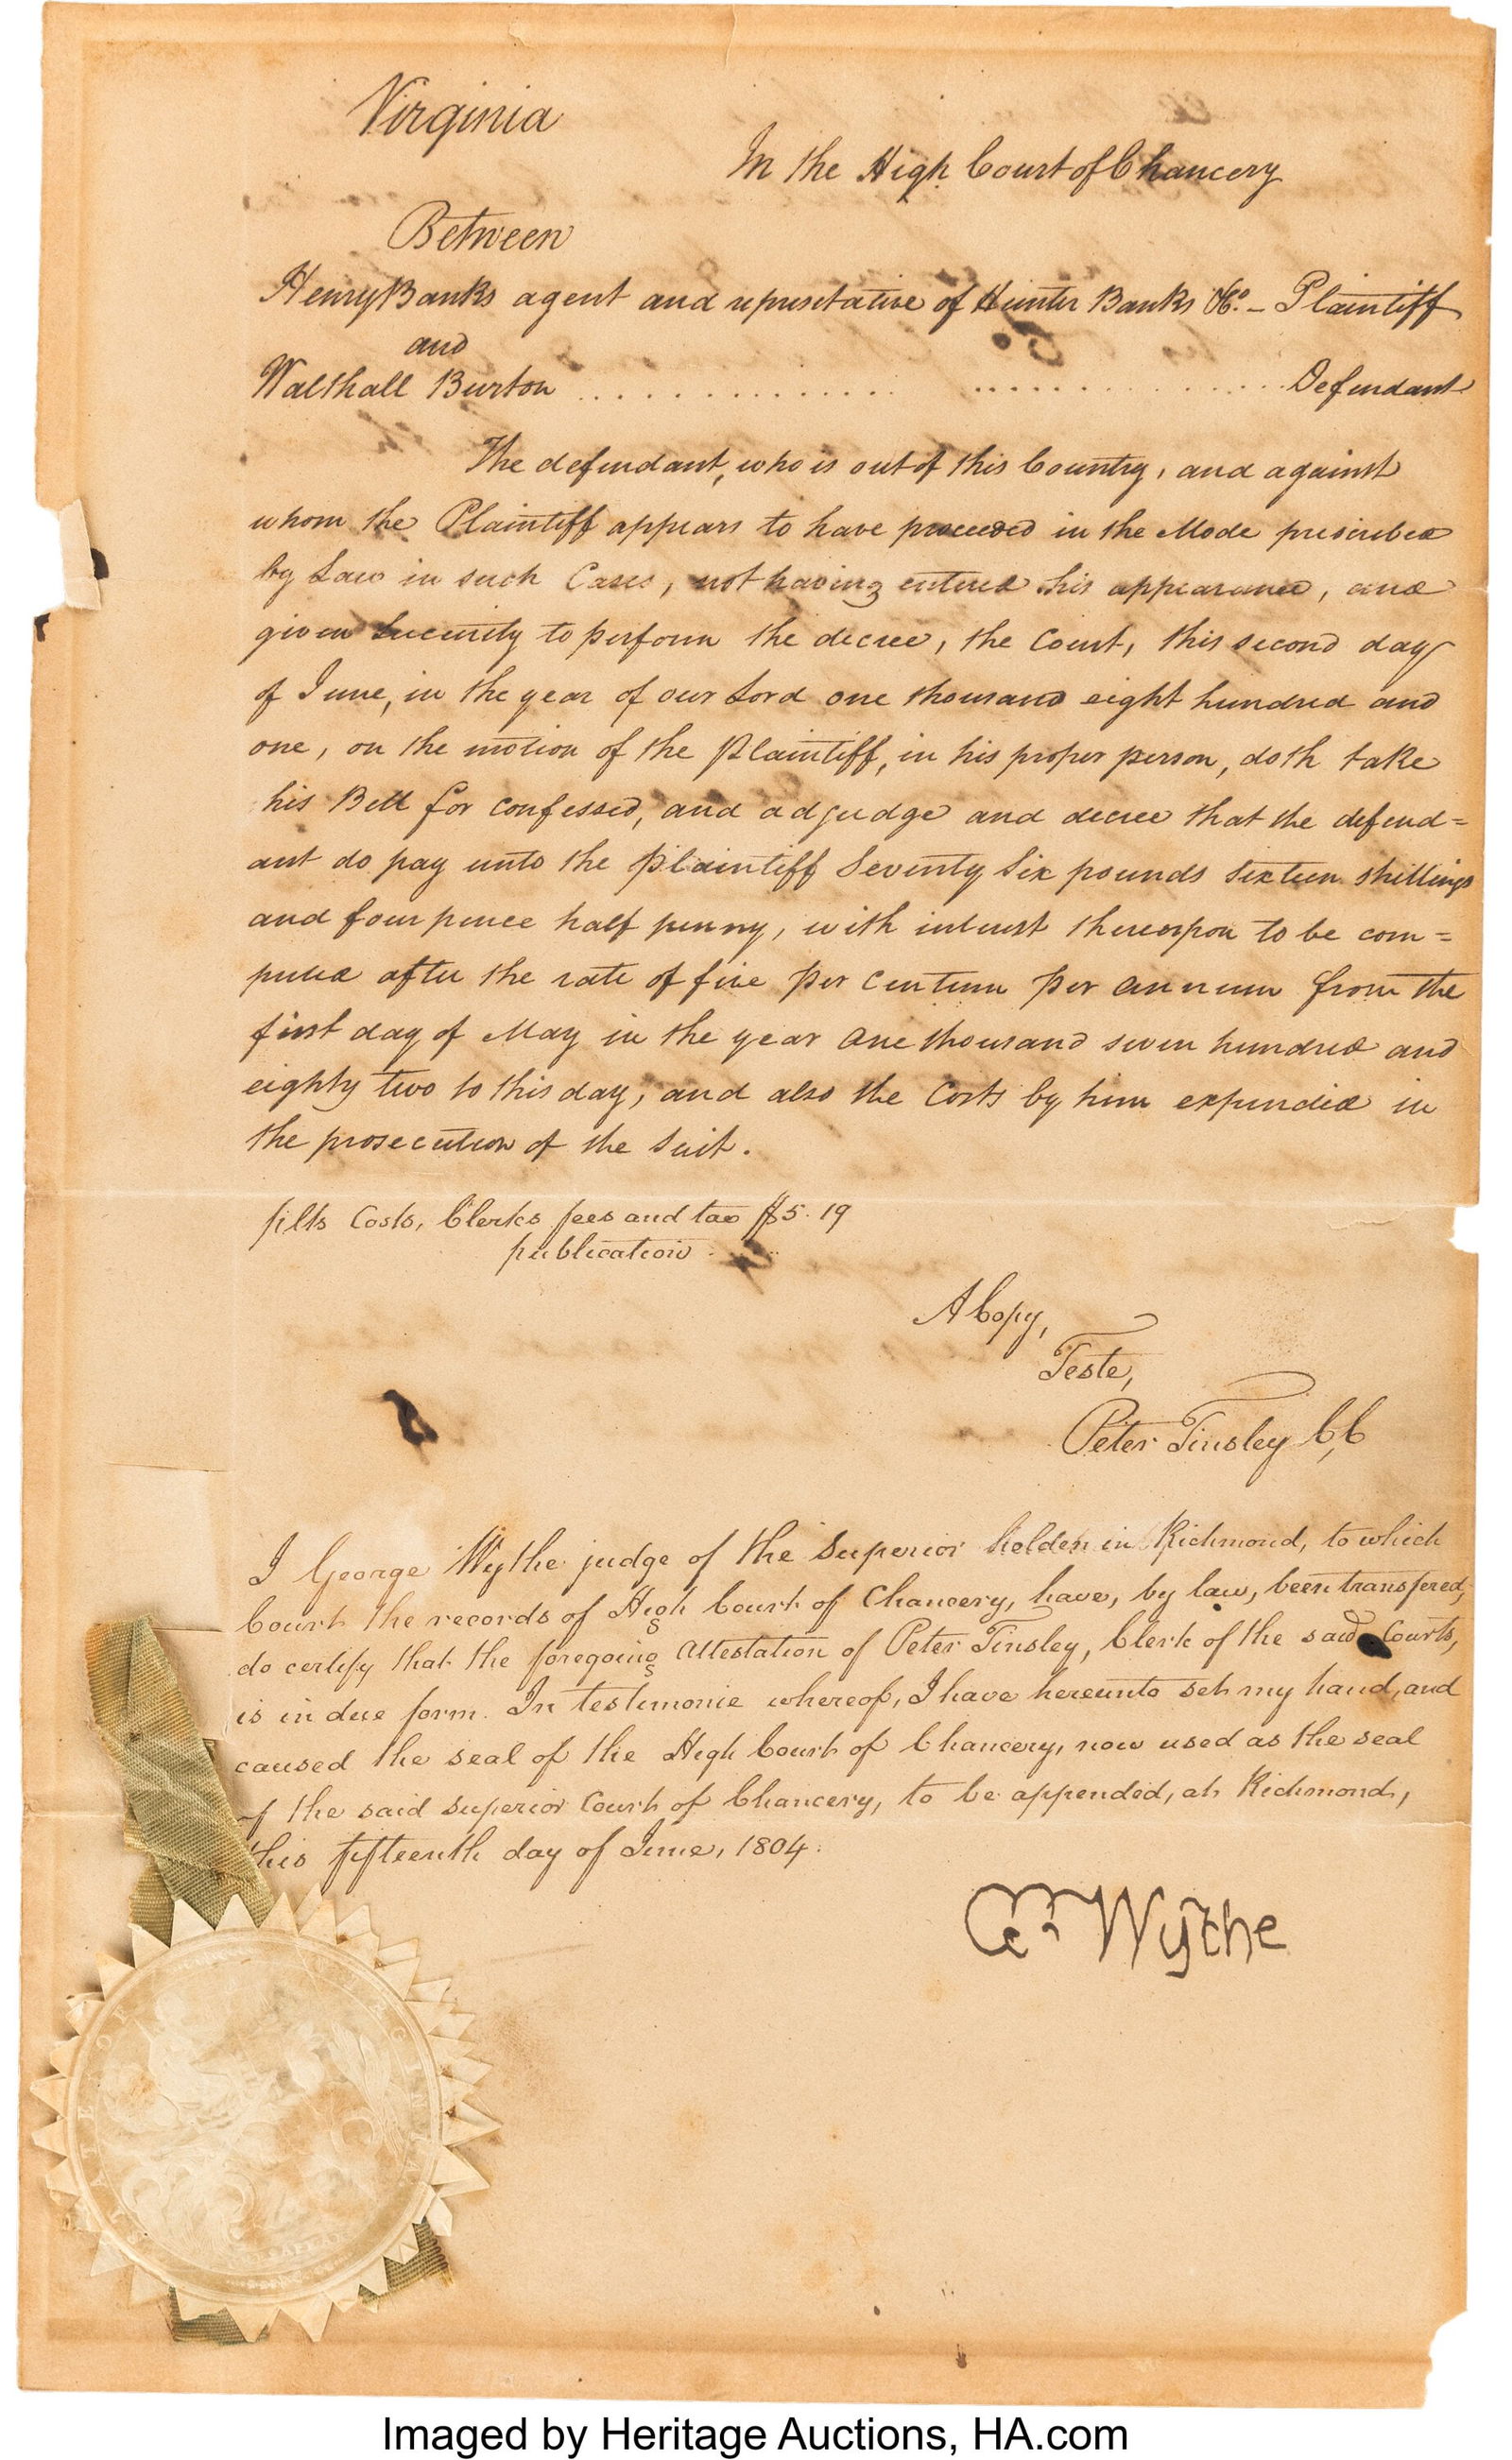 Virginia
In the High Court of Chancery
Between
Henry Banks agent and represetative of Hunter Banks &Co. - Plaintiff
and
Walthall Burton .............. .............. Defendant
The defendant, who is out of this Country, and against
whom the Plaintiff appears to have proceeded in the Mode prescribed
by Law in such Cases, not having entered his appearance, and
given Security to perform the decree, the Court, this second day
of June, in the year of our Lord one thousand eight hundred and
one, on the motion of the Plaintiff, in his proper person, doth take
his Bill for confessed, and adjudge and decree that the defend=
ant do pay unto the Plaintiff Seventy Six pounds Sixteen shillings
and four pence half penny, with interest thereupon to be com=
puted after the rate of five per Centum per annum from the
first day of May in the year one thousand seven hundred and
eighty two to this day, and also the Costs by him expended in
the prosecution of the Suit.
plts Costs, Clerks fees and tax $5.19
publication
A Copy,
Teste,
Peter Tinsley C,C
I George Wythe judge of the Superior holden in Richmond, to which
Court the records of High Court of Chancery, have, by law, been transfered,
do certify that the foregoing attestation of Peter Tinsley, Clerk of the said Courts,
is in due form. In testimonie whereof, I have hereunto set my hand, and
caused the seal of the High Court of Chancery, now used as the seal
of the said Superior Court of Chancery, to be appended, at Richmond,
this fifteenth day of June, 1804.
G Wythe
Imaged by Heritage Auctions, HA.com